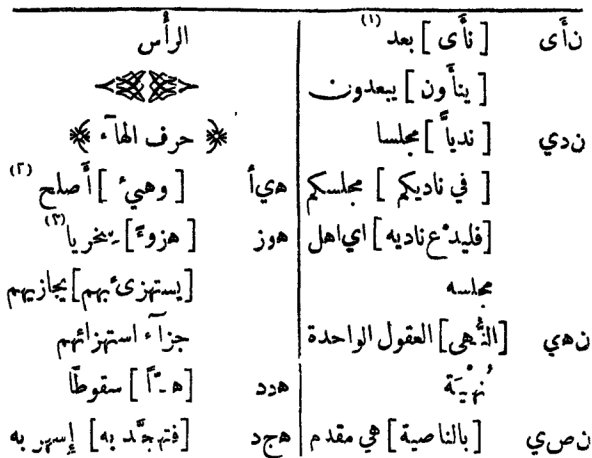 نأى [ نأى ] بعد (١)
[ ينأون ] يبعدون
ندي [ ندياً ] مجلسا
[ في ناديكم ] مجلسكم
[فليدع ناديه] اي اهل
مجلسه
نهي [النُّهى] العقول الواحدة
نُهْيَة
نصي [ بالناصية ] هي مقدم
الرأس
﴿ حرف الهآء ﴾
هيأ [ وهيئ ] أصلح (٢)
هوز [ هزوءً ] سخريا (٣)
[يستهزئ بهم] يجازيهم
جزآء استهزائهم
هدد [ هدّاً ] سقوطًا
هجد [فتهجَّد به] إسهر به